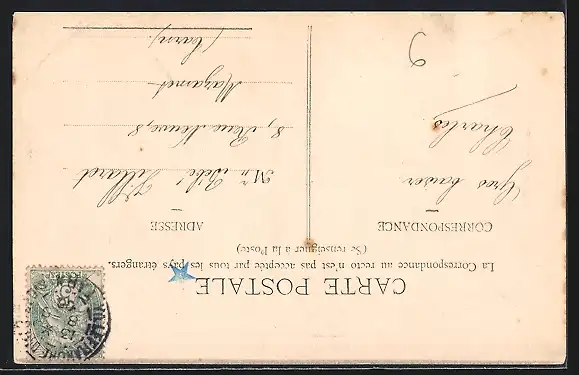 CARTE POSTALE
La Correspondance au recto n'est pas acceptée par tous les pays étrangers.
(Se renseigner à la Poste)
CORRESPONDANCE
Gros baiser
Charles
9
ADRESSE
Mr Bébé Villaret
8, Rue Neuve, 8
Mazamet
(Tarn)